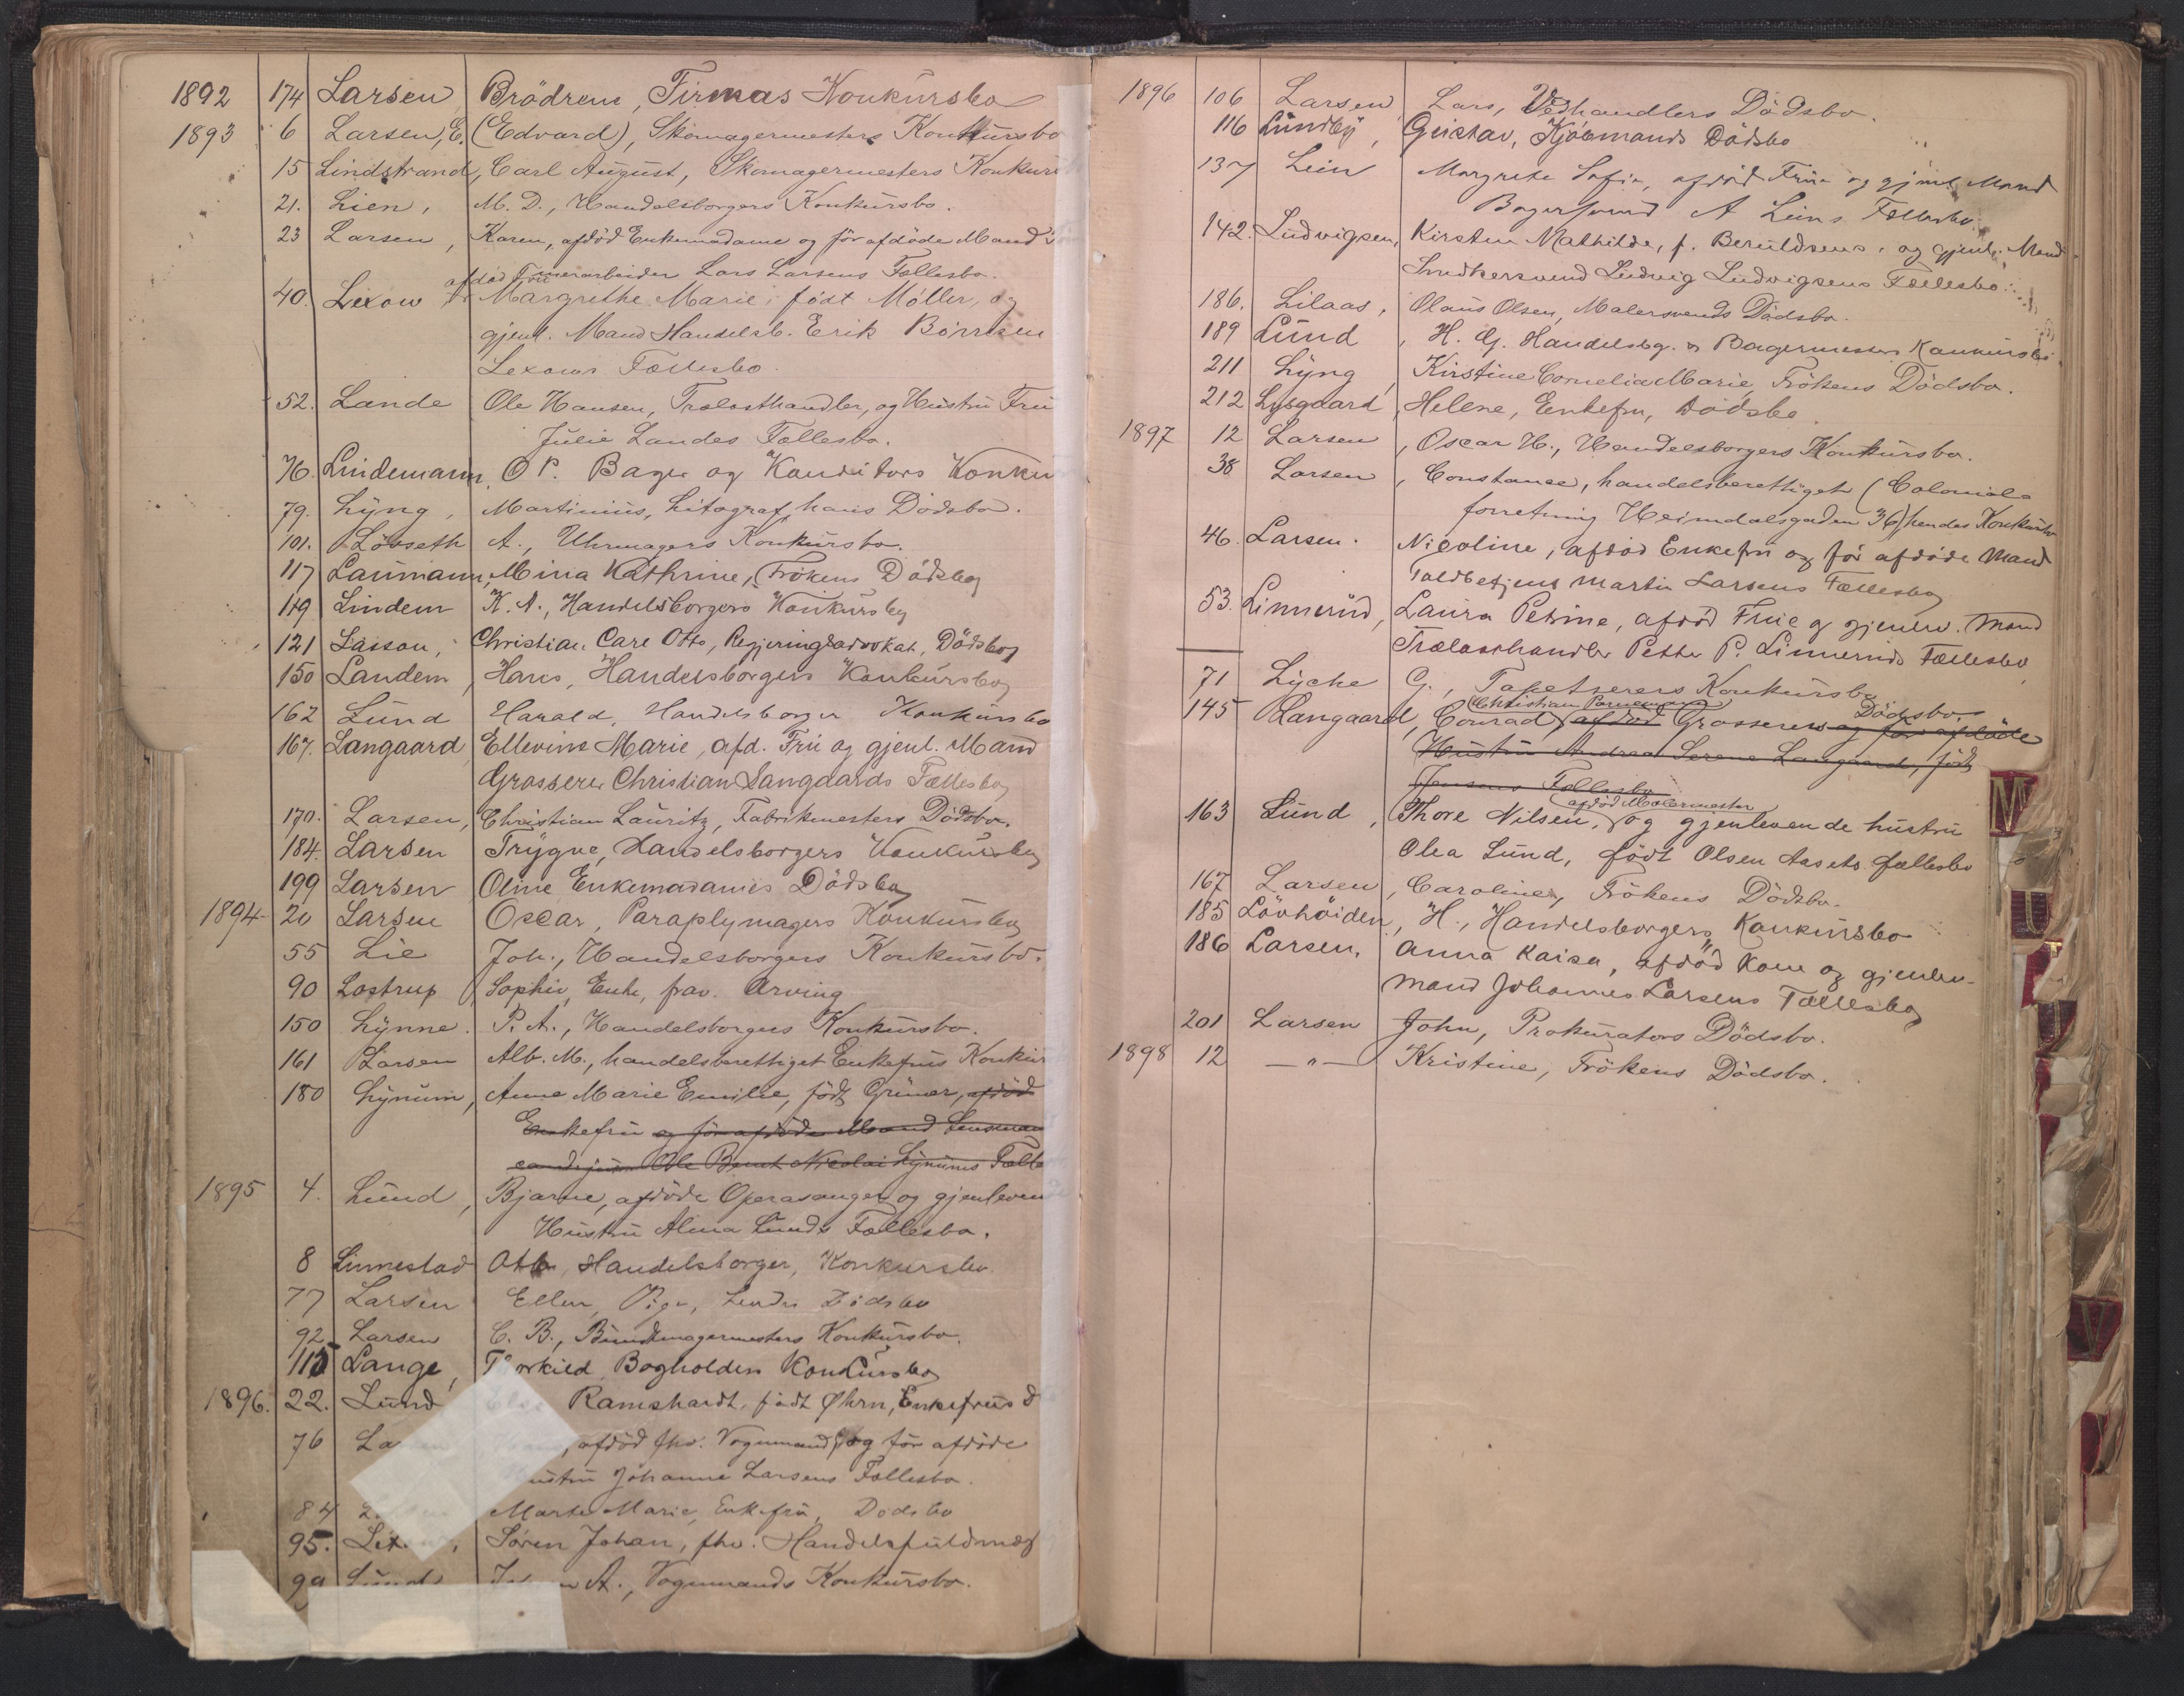 1892 174 Larsen Brödrene, Firmas Konkursbo
1893 6 Larsen, E. (Edvard), Skomagermesters Konkursbo
15 Lindstrand, Carl August, Skomagermesters Konkurs
21. Lien, M. D., Handelsborgers Konkursbo.
23 Larsen, Karen, afdöd Enkemadame og för afdöde Mand
Lars Larsens Fællesbo.
40. Lexow afdöd Fru Margrethe Marie, födt Møller, og
gjenl. Mand Handelsb. Erik Börresen
Lexows Fællesbo.
52. Lande Ole Hansen, Trælasthandler, og Hustru Fru
Julie Landes Fællesbo.
76. Lindemann, O P. Bager og Konditors Konku
79. Lyng, Martinius, Litograf, hans Dödsbo.
101. Lövseth A., Uhrmagers Konkursbo.
117 Laumann, Mina Kathrine, Frökens Dödsbo
119 Lindem K. A., Handelsborgers Konkursbo
121 Lasson, Christian Carl Otto, Regjeringsadvokat, Dödsbo
150 Landem, Hans, Handelsborgers Konkursbo
162 Lund Harald, Handelsborger Konkursbo
167. Langaard, Ellevine Marie, afd. Fru og gjenl. Mand
Grosserer Christian Langaards Fællesbo
170. Larsen, Christian Lauritz, Fabrikmesters Dödsbo.
184. Larsen Trygve, Handelsborgers Konkursbo
199 Larsen Oline Enkemadames Dödsbo
1894 20 Larsen Oscar, Paraplymagers Konkursbo
55 Lie Joh., Handelsborgers Konkursbo.
90 Lostrup Sophie, Enke, frav. Arving
150 Lynne. P. A., Handelsborgers Konkursbo.
161 Larsen Alb. M., handelsberettiget Enkefrus Konkur
180 Lynum, Anne Marie Emilie, födt Grüner, afdöd
Enkefru og för afdöde Mand Lensman
cand. jur. Ole Bernt Nicolai Lynums Fælle
1895 4. Lund, Bjarne, afdöde Operasanger og gjenleven
Hustru Alma Lunds Fællesbo.
8 Linnestad Otto, Handelsborger, Konkursbo
77 Larsen Ellen, Pige, hendes Dödsbo
92 Larsen C. B., Bundtmagermesters Konkursbo.
115 Lange, Thorkild, Bogholders Konkursbo
1896. 22. Lund Ramshardt, födt Øhrn, Enkefrus d
76 La , afdöd fhv. Vognmand og för afdöde
Hustru Johanne Larsens Fællesbo.
84 Marte Marie, Enkefru, Dödsbo
95. Søren Johan, fhv. Handelsfuldmæg
99 Lund A., Vognmands Konkursbo.
1896 106 Larsen, Lars, Vedhandlers Dödsbo.
116 Lundby, Gustav, Kjöbmands Dödsbo
137 Lein Margrete Sofie, afdöd Frue og gjenl. Mand
Bagersvend A Leins Fællesbo.
142. Ludvigsen, Kirsten Mathilde, f. Beruldsens, og gjenl. Mand
Snedkersvend Ludvig Ludvigsens Fællesbo.
186. Lilaas, Olaus Olsen, Malersvends Dödsbo.
189 Lund, H. G. Handelsbg. & Bagermesters Konkursbo
211 Lyng, Kirstine Cornelia Marie, Frökens Dödsbo.
212 Lysgaard, Helene, Enkefru, Dödsbo
1897 12 Larsen, Oscar H., Handelsborgers Konkursbo.
38 Larsen, Constance, handelsberettiget (Colonial-
forretning Heimdalsgaden 36) hendes Konkursbo
46. Larsen. Nicoline, afdöd Enkefru og för afdöde Mand
Toldbetjent Martin Larsens Fællesbo
53. Linnerud, Laura Petrine, afdöd Frue og gjenlev. Mand
Trælasthandler Petter P. Linneruds Fællesbo
71 Lyche G., Tapetserers Konkursbo
145 Langaard, Conrad Christian afdöd Grosserers og för afdöde Dödsbo.
Hustru Andrea Serene Langaard, födt
Jensens Fællesbo
163 Lund, Thore Nilsen, afdöd Malermester og gjenlevende hustru
Olea Lund, født Olsen Aasets fællesbo
167 Larsen, Caroline, Frökens Dödsbo.
185 Lövhöiden, H., Handelsborgers Konkursbo
186 Larsen, Anna Kaisa, afdöd Kone og gjenlev.
Mand Johannes Larsens Fællesbo
201 Larsen John, Prokurators Dödsbo.
1898 12 —"— Kristine, Frökens Dödsbo.
M
V